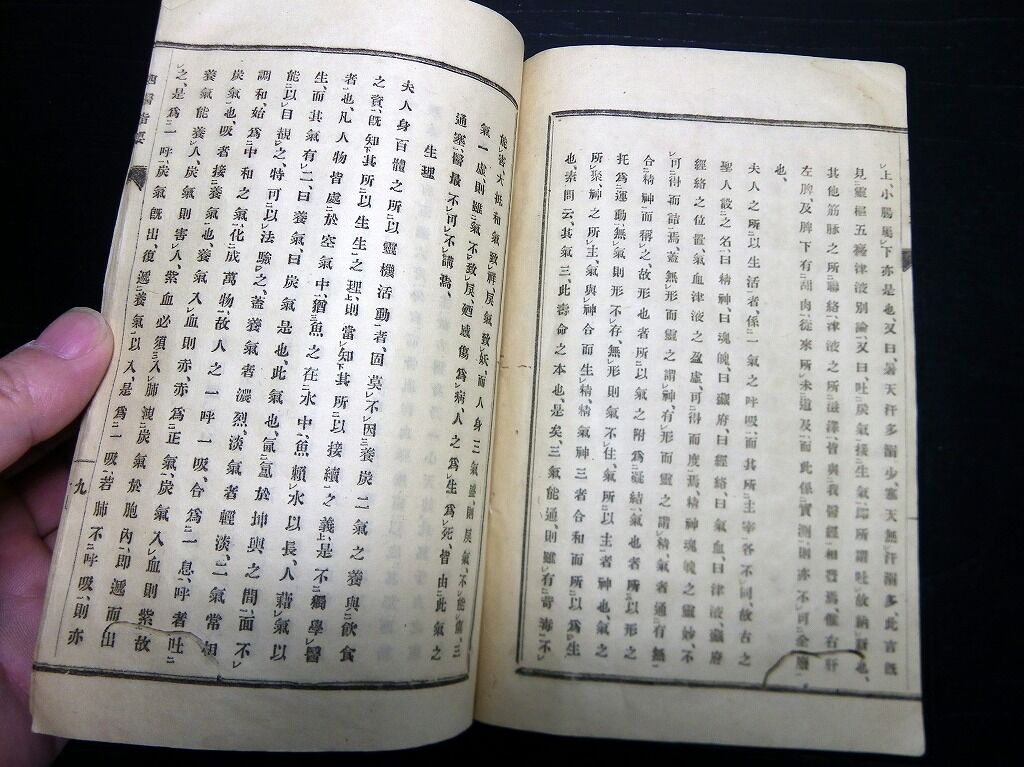 上、小腸屬下亦是也、又曰、暑天汗多溺少、寒天無汗溺多、此言既
見靈樞五癃津液別論、又曰、吐炭氣、接生氣、即所謂吐故納新也、
其他筋脉之所聯絡、津液之所滋澤、皆與我醫經相發焉、惟右肝
左脾、及脾下有甜肉、從來所未道及、而此係實測、則亦不可全廢
也、
夫人之所以生活者、係一氣之呼吸、而其所主宰、各不同、故古之
聖人設之名、曰精神、曰魂魄、曰臟府、曰經絡、曰氣血、曰津液、臟府
經絡之位置、氣血津液之盈虛、可得而度焉、精神魂魄之靈妙、不
可得而詰焉、蓋無形而靈之謂神、有形而靈之謂精、氣者通有無
合精神而稱之、故形也者、所以氣之附爲凝結、氣也者、所以形之
托爲運動、無氣則形不存、無形則氣不住、氣所以主者神也、氣之
所聚、神之所主、氣與神合而生精、精氣神三者合和而所以爲生
也、素問云、其氣三、此壽命之本也、是矣、三氣能通、則雖有苛毒、不
能害、大抵和氣致祥、戻氣致妖、而人身三氣盛、則戻氣不能傷、三
氣一虛則雖氣不致戻、廼感傷爲病、人之爲生爲死、皆由此氣之
通塞、醫最不可不講焉、
生理
夫人身百體之所以靈機活動者、固莫不因養炭二氣之養與飲食
之資、既知其所以生生之理、則當知其所以接續之義、是不獨學醫
者也、凡人物皆處於空氣中、猶魚之在水中、魚賴水以長、人藉氣以
生、而其氣有二、曰養氣、曰炭氣是也、此氣也、氤氳於坤輿之間、而不
能以目視之、特可以法驗之、蓋養氣者濃烈、淡氣者輕淡、二氣常相
調和、始爲中和之氣、化成萬物、故人之一呼一吸、合爲一息、呼者吐
炭氣也、吸者接養氣也、養氣入血則赤、赤爲正氣、炭氣入血則紫、故
養氣能養人、炭氣則害人、紫血必須入肺、洩炭氣於胞內、即遞而出
之、是爲一呼、炭氣既出、復遞養氣以入、是爲一吸、若肺不呼吸、則亦
西醫指要
九